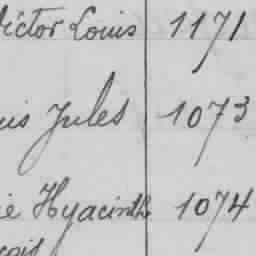 Victor Louis 1171
uis Jules 1073
ie Hyacinthe 1074
çois